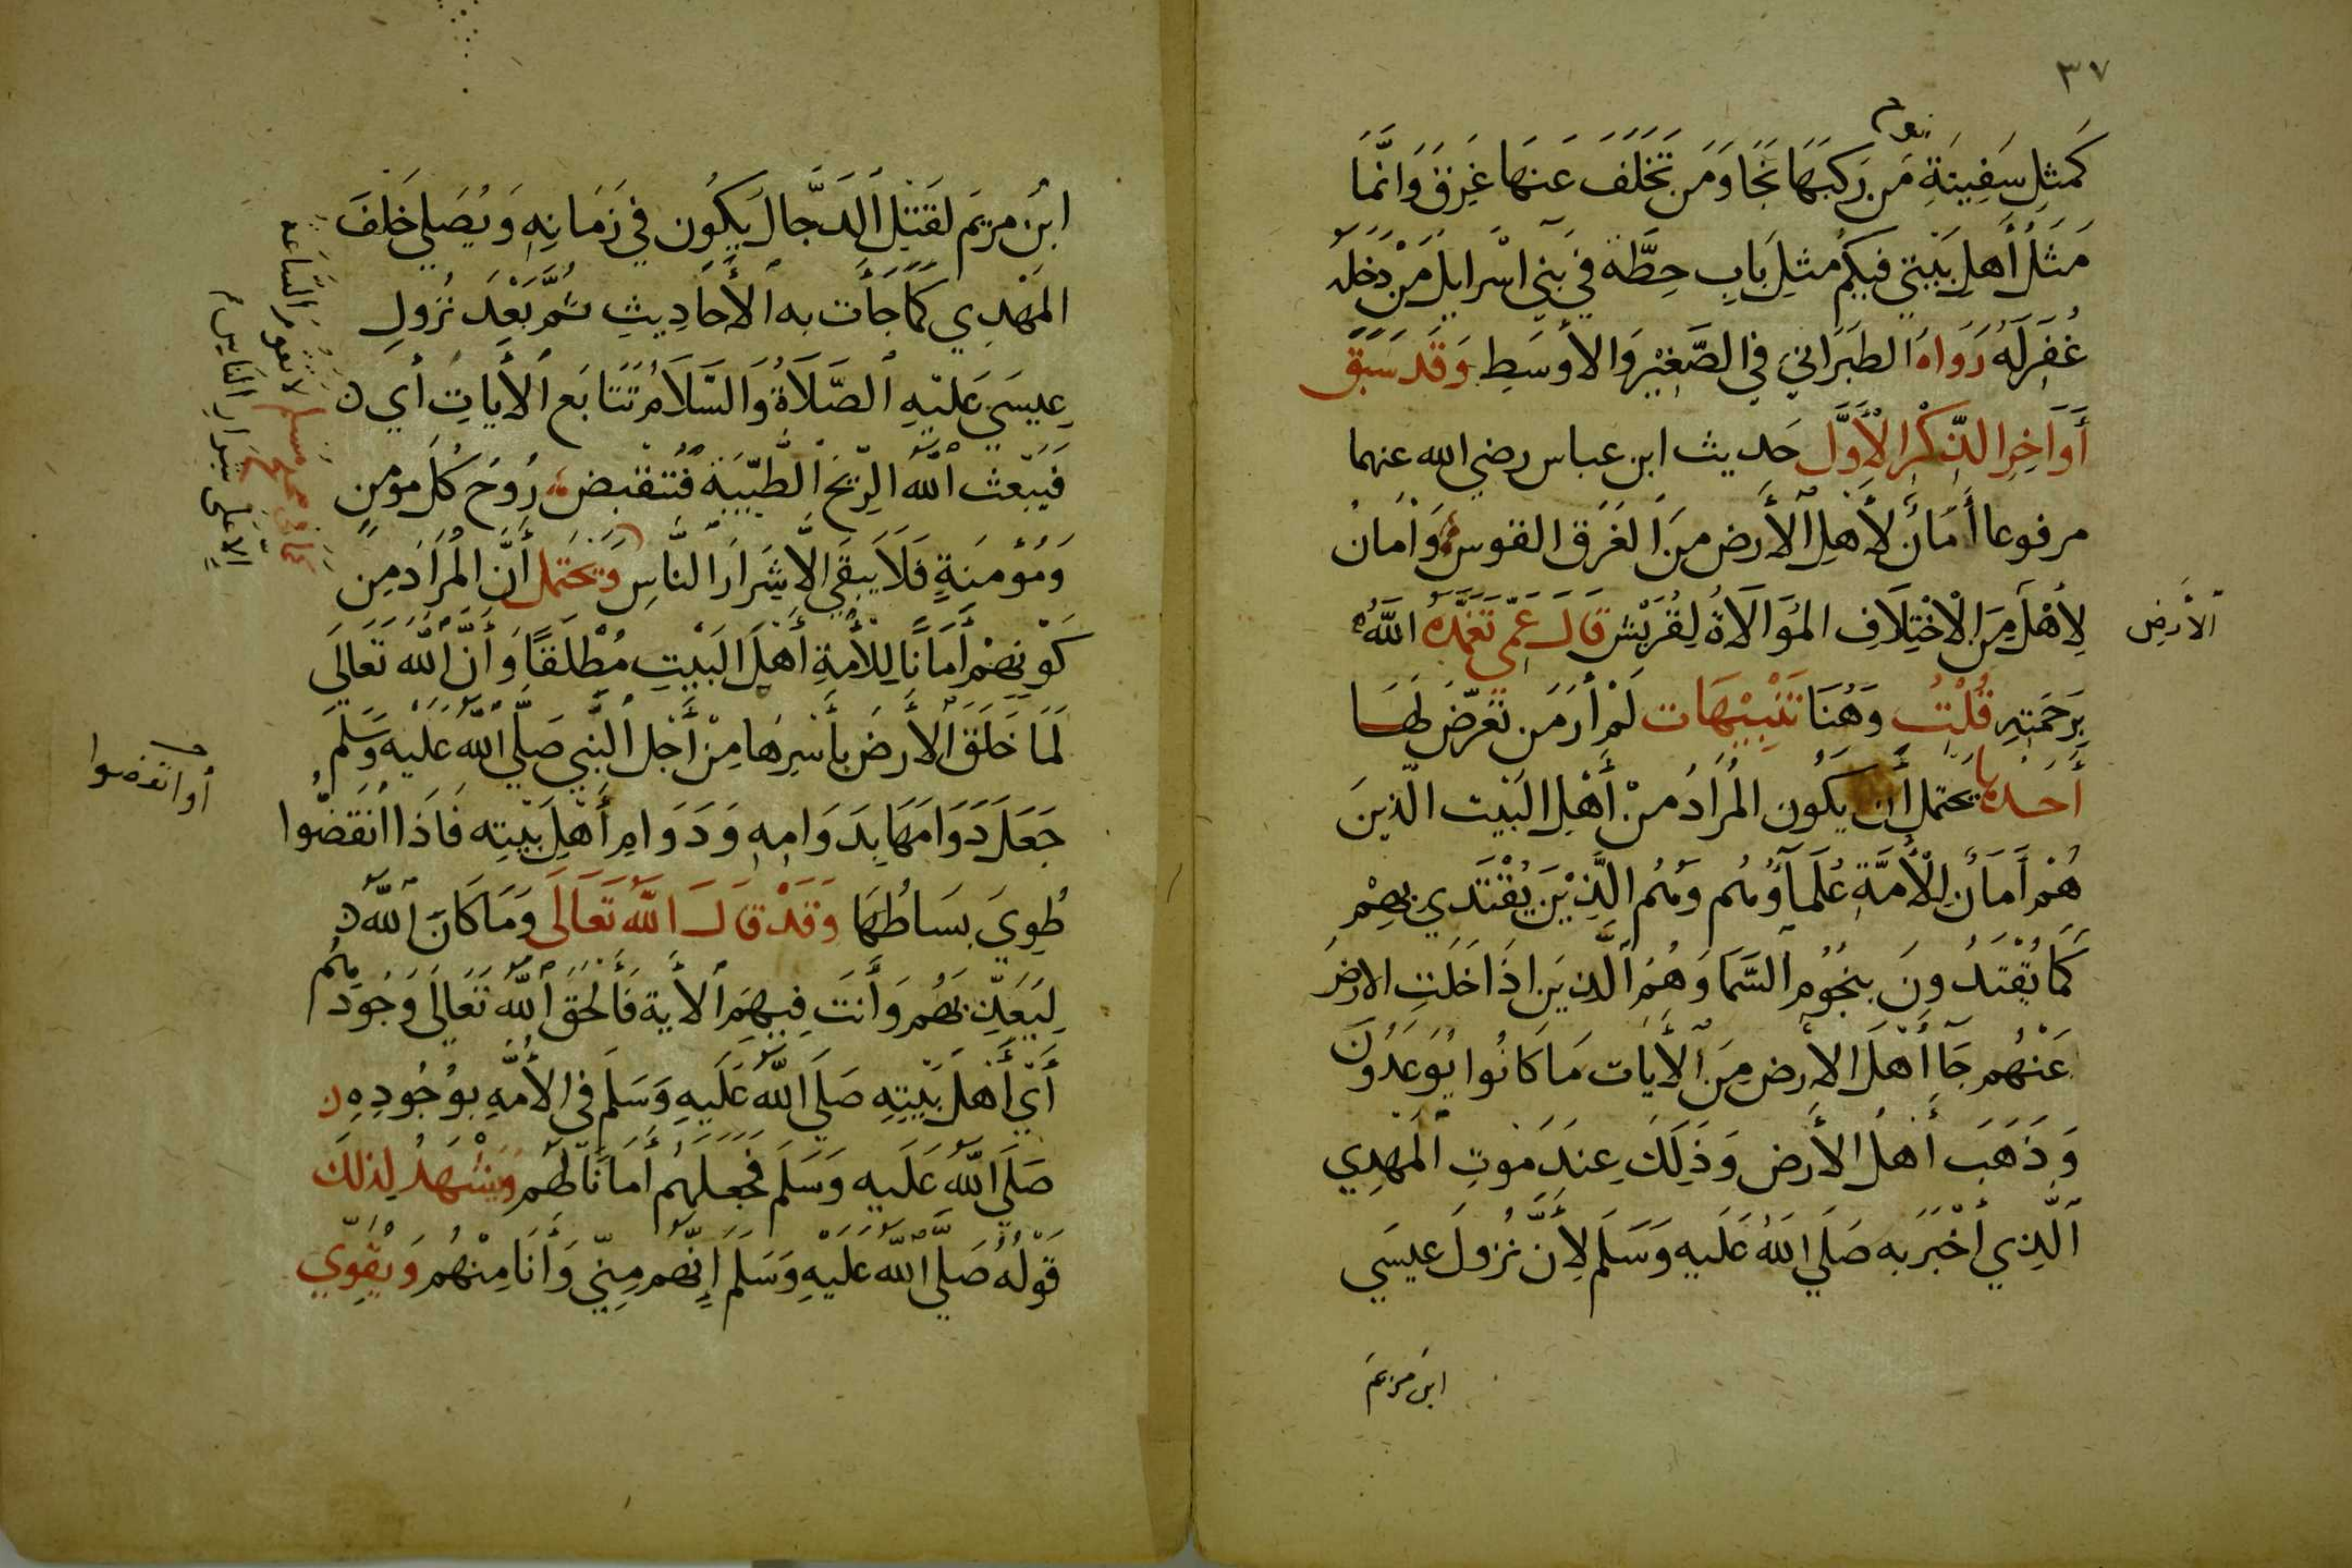 ٣٧
نوح
كَمثِلِ سَفِينَةِ مَن رَكبَهَا نَجَا وَمَن تَخَلَّفَ عَنهَا غَرِقَ وَانَّمَا
مَثَلُ أَهلِ بَيْتِي فيكُم مثلِ بَابِ حِطَّة في بَنِي اسْرايلَ مَنْ دَخله
غُفِرَ لَهُ رَوَاهُ الطبَرَانيَ في الصَّغِيْرِ وَالأوسَطِ وَقَد سَبَقَ
أَوَاخِرِ الذِّكْرِ الْأَوَّل حَديث ابن عباس رضي الله عنهما
مرفوعا أَمَانٌ لأَهلِ الأَرض مِنَ الغَرَق القوس وَأمَانٌ
لِأهْلَ مِنَ الْاخْتِلَافِ المُوَالَاةُ لِقُرَيْش قَالَ عَمِّي تَغَمَّدَهُ اللَّهُ
الأَرضِ
بِرَحمَتِهِ قُلْتُ وَهُنَا تَنْبِيْهَات لَمْ أرَ مَن تَعَرّضَ لَهَا
أَحَد يَحتمل أَن يَكُون المُرَادُ منْ أَهْلِ البَيْت الّذينَ
هُمْ أَمَانٌ لِلْأُمَّةِ عُلَمَآؤُهُم وَهُم الَّذِيْنَ يُقْتَدَي بِهِمْ
كَمَا يُقْتَدُونَ بنجُومِ السَّمَا وَهُمُ الّذِينَ اذَا خَلَتِ الارضُ
عَنْهُم جَا أَهْلَ الارض مِنَ الأيَات مَا كَانُوا يُوعَدُونَ
وَذَهَبَ أَهلُ الأَرض وَذَلِكَ عِندَ مَوتِ المَهْدِي
الَّذِي أَخْبَرَ به صَلَي اللهُ عَلَيهِ وَسَلَم لِأَنَّ نُزولَ عيسَي
ابن مريم
ابنِ مريَم لقَتلِ الدَّجَّالَ يَكُون في زَمَانِهِ وَيُصَلي خَلفَ
المَهْدِي كَمَا جَأَت به الأَحَادِيثِ ثمَّ بَعْدَ نُزولِ
عِيسَي عَلَيْهِ الصَّلَاةُ وَالسَّلَامُ تَتَابَع الأَيَاتُ أي
فَيَبْعَثُ اللّه الرِّيحَ الطَّيِّبَةَ فَتَنقبِض رُوحَ كُل مؤمِن
وَمُؤمنَةٍ فَلَا يَبقَي الَّا شِرَارَ النَّاسِ وَيَحْتَمل أَنَّ المُرَادَ مِن
كَوْنِهِمْ أَمَانًا لِلأُمَّةِ أَهْلَ البَيْتِ مُطْلَقًا وَأَنَّ اللّه تَعَالَي
لَمَا خَلَقَ الأَرضَ بأَسْرِهَا مِنْ أَجْل النَّبِي صَلَّي اللّه عَلَيه وَسَلَّم
جَعَلَ دَوَامَهَا بِدَوَامِهِ وَدَوَامِ أَهْلِ بَيْتِه فَاذَا انقَضُوا
أو انقضوا
طُوِيَ بِسَاطُهَا وَقَدْ قَالَ اللّه تَعَالَى وَمَا كَانَ اللّه
لِيُعَذِّبَهُم وَأَنتَ فِيهِم الأَية فَأَلحَقَ اللّه تَعَالَي وَجُودهُم
أَيْ أَهْلَ بَيْتِهِ صَلَي اللّهُ عَلَيهِ وَسَلَم في الأُمَّهِ بوُجُودِهِ
صَلَي اللّهُ عَلَيهِ وَسَلَم فَجَعَلَهُم أَمَانًا لَهُم وَيَشْهَدُ لِذلكَ
قَوْلُهُ صَلَّي اللّه عَلَيْهِ وَسَلَمَ إنَّهُم مِنِّي وَأَنَا مِنْهُم وَيُقَوِّي
لا تقوم السَّاعَه
الا عَلَى شرَارِ النَاسِ